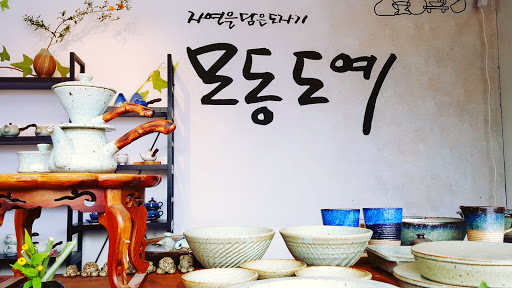 자연을 담은 도자기
모동도예